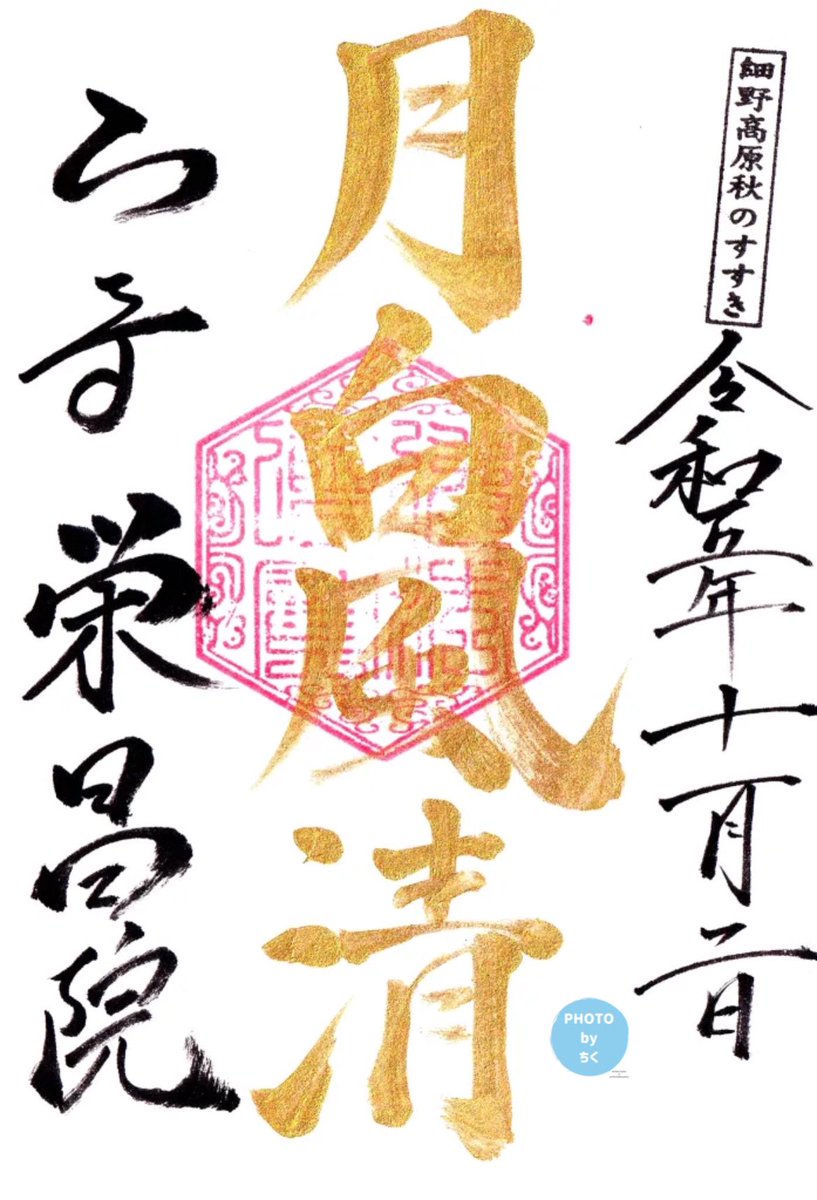 細野高原秋のすすき
令和五年十一月二日
月白風清
栄昌院
PHOTO
by
ちく